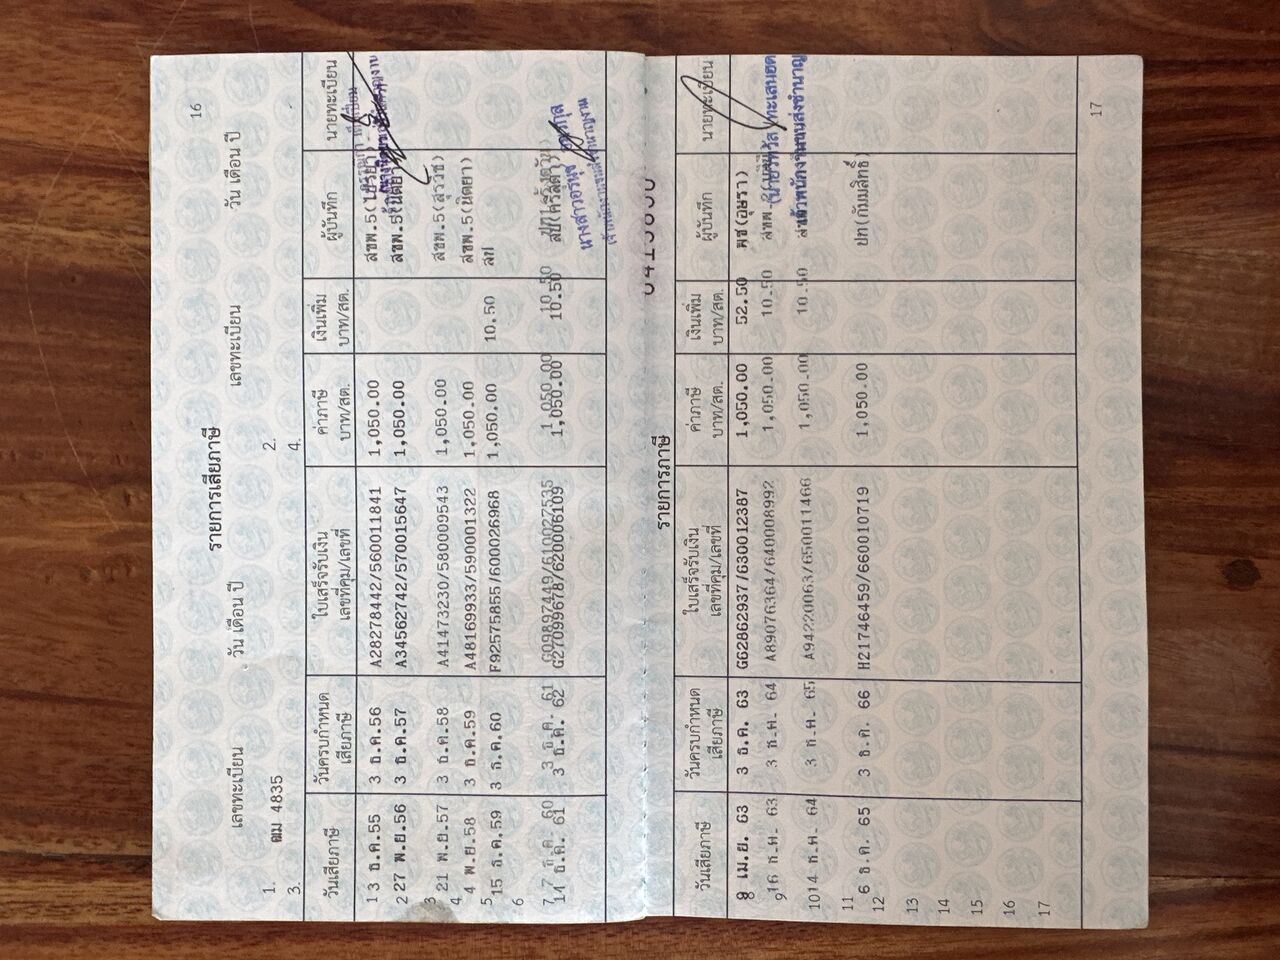 16
รายการเสียภาษี
เลขทะเบียน วัน เดือน ปี เลขทะเบียน วัน เดือน ปี
1. ฒม 4835 2.
3. 4.
วันเสียภาษี วันครบกำหนดเสียภาษี ใบเสร็จรับเงิน เลขที่คุม/เลขที่ ค่าภาษี บาท/สต. เงินเพิ่ม บาท/สต. ผู้บันทึก นายทะเบียน
1 3 ธ.ค.55 3 ธ.ค.56 A28278442/560011841 1,050.00 สขพ.5
2 27 พ.ย.56 3 ธ.ค.57 A34562742/570015647 1,050.00 สขพ.5(นิตยา)
3 21 พ.ย.57 3 ธ.ค.58 A41473230/580009543 1,050.00 สขพ.5(สุวรีย์)
4 4 พ.ย.58 3 ธ.ค.59 A48169933/590001322 1,050.00 สขพ.5(นิตยา)
5 15 ธ.ค.59 3 ธ.ค.60 F92575855/6000026968 1,050.00 10.50 สป
6
7 17 ธ.ค. 60 3 ธ.ค. 61 1,050.00 10.50
14 ธ.ค. 61 3 ธ.ค. 62 G27099678/620006109 1,050.00 10.50
นางสาวอรนุช
รายการภาษี
วันเสียภาษี วันครบกำหนดเสียภาษี ใบเสร็จรับเงิน เลขที่คุม/เลขที่ ค่าภาษี บาท/สต. เงินเพิ่ม บาท/สต. ผู้บันทึก นายทะเบียน
8 8 เม.ย. 63 3 ธ.ค. 63 G62862937/630012387 1,050.00 52.50 พช(อุษรา)
9 16 ธ.ค. 63 3 ธ.ค. 64 A89076364/640008992 1,050.00 10.50
10 14 ธ.ค. 64 3 ธ.ค. 65 A94220063/650011466 1,050.00 10.50
11
12 6 ธ.ค. 65 3 ธ.ค. 66 H21746459/660010719 1,050.00 ปท(กัมมสิทธิ์)
13
14
15
16
17
17